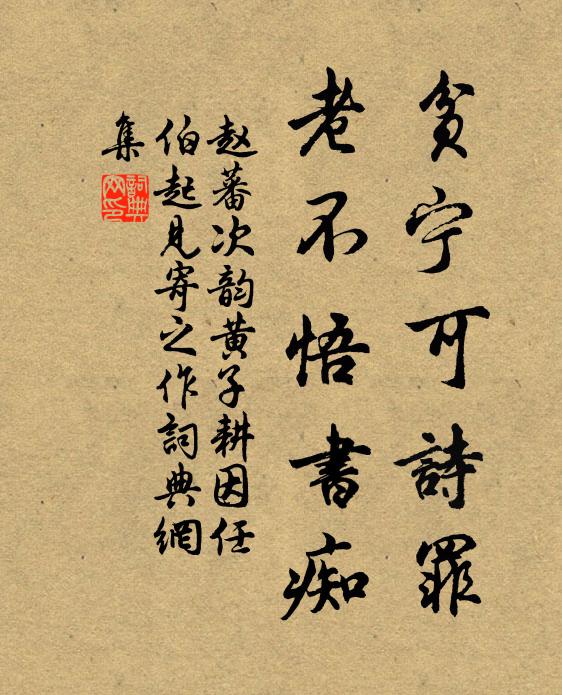 貧宁可詩罪
老不悟書痴
赵蕃次韵黄子耕因任
伯起見寄之作詞典網
集
詞典
网印